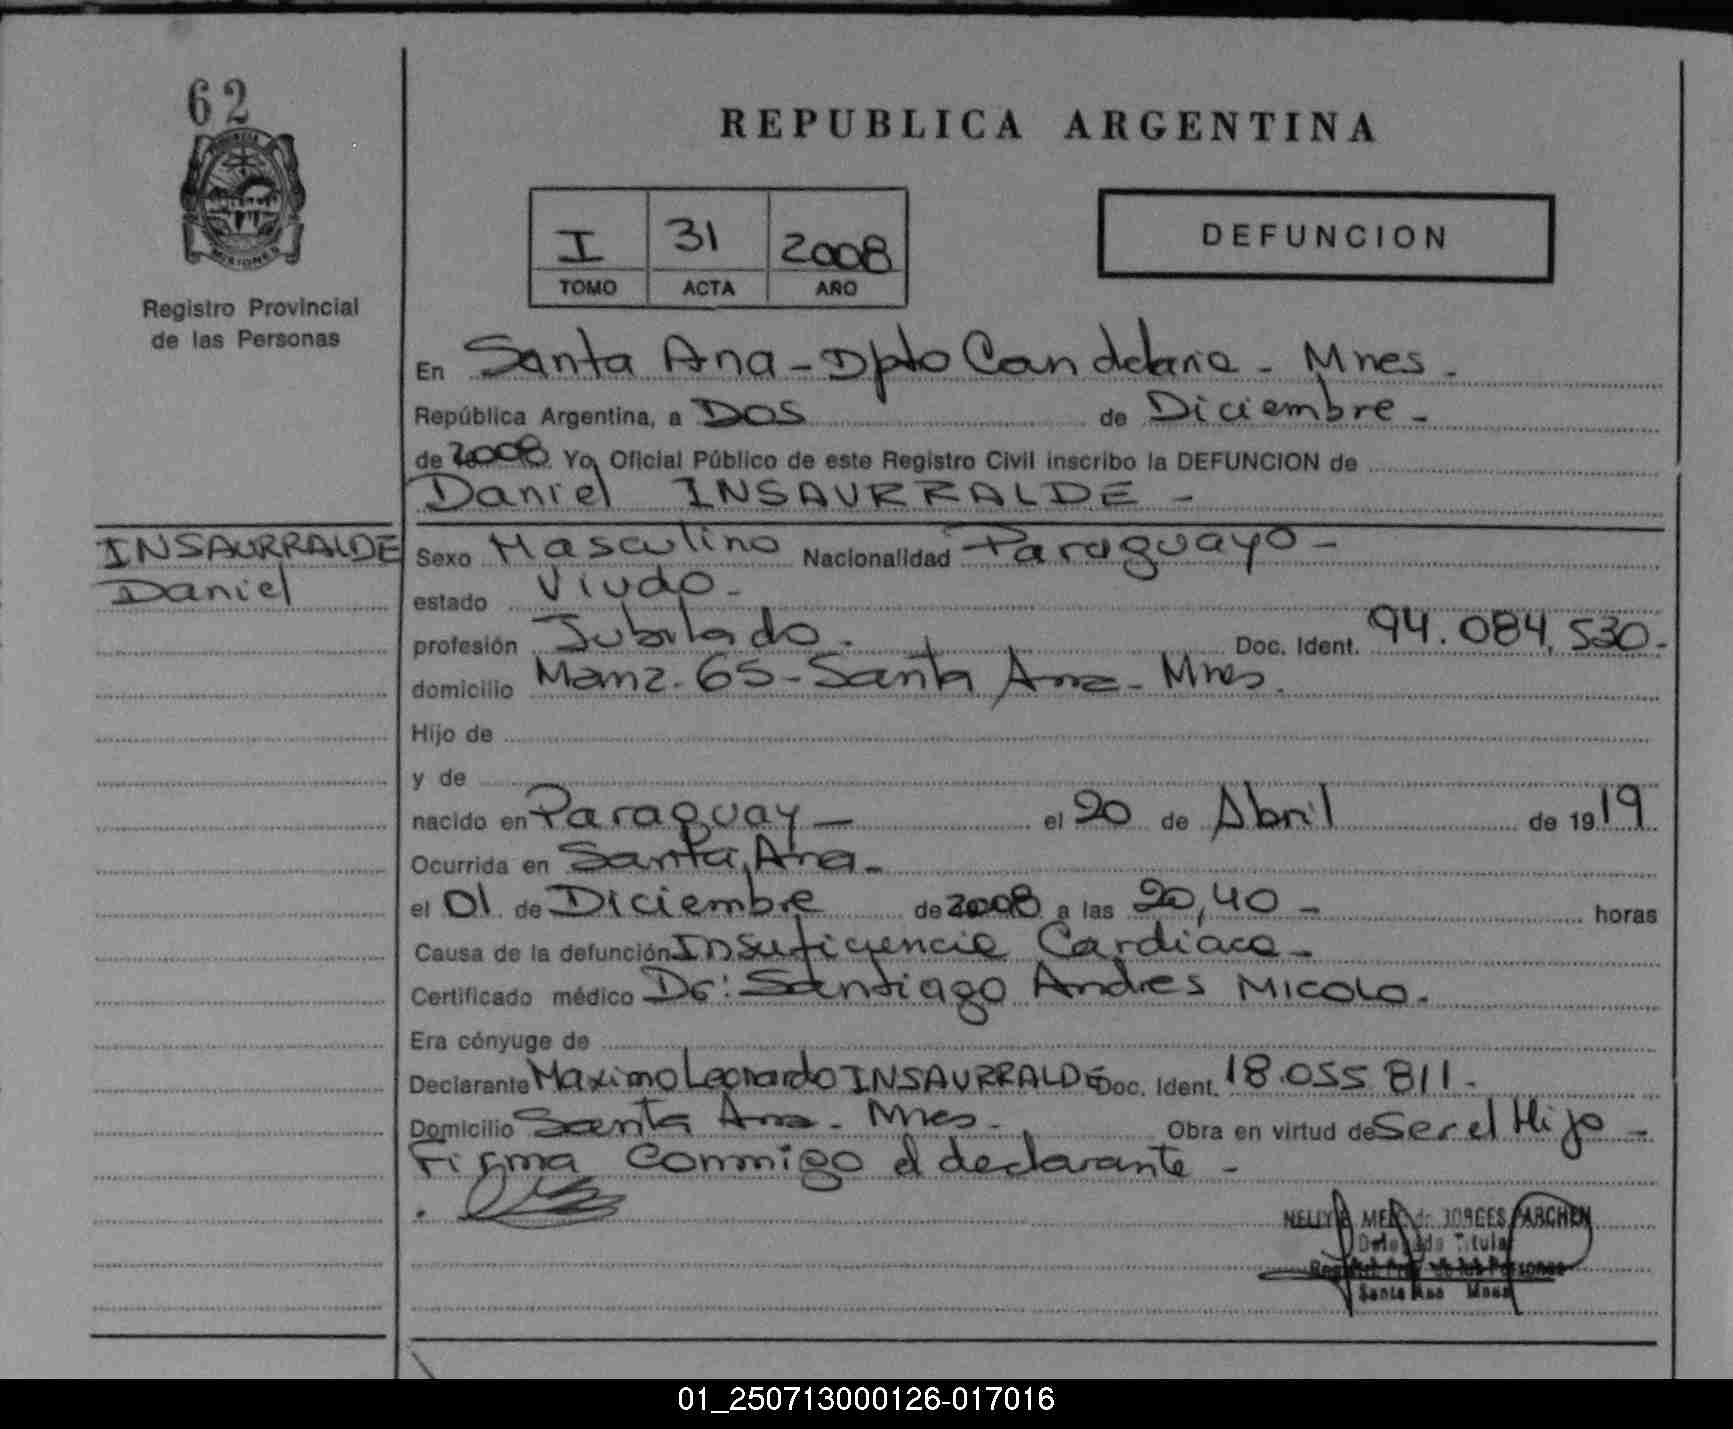 62
MISIONES
Registro Provincial
de las Personas
REPUBLICA ARGENTINA
I 31 2008
TOMO ACTA AÑO
DEFUNCION
En Santa Ana - Dpto Candelaria - Mnes.
República Argentina, a DOS de Diciembre -
de 2008. Yo, Oficial Público de este Registro Civil inscribo la DEFUNCION de
Daniel INSAURRALDE -
INSAURRALDE
Daniel
Sexo Masculino Nacionalidad Paraguayo -
estado Viudo -
profesión Jubilado. Doc. Ident. 94.084.530 -
domicilio Manz. 65 - Santa Ana - Mnes.
Hijo de
y de
nacido en Paraguay - el 20 de Abril de 1919
Ocurrida en Santa Ana -
el 01 de Diciembre de 2008 a las 20,40 - horas
Causa de la defunción Insuficiencia Cardiaca -
Certificado médico Dr: Santiago Andres MICOLO.
Era cónyuge de
Declarante Maximo Leonardo INSAURRALDE Doc. Ident. 18.055.811 -
Domicilio Santa Ana - Mnes - Obra en virtud de Ser el Hijo -
Firma Conmigo el declarante -
Delegada Titular
Santa Ana Mnes
01_250713000126-017016